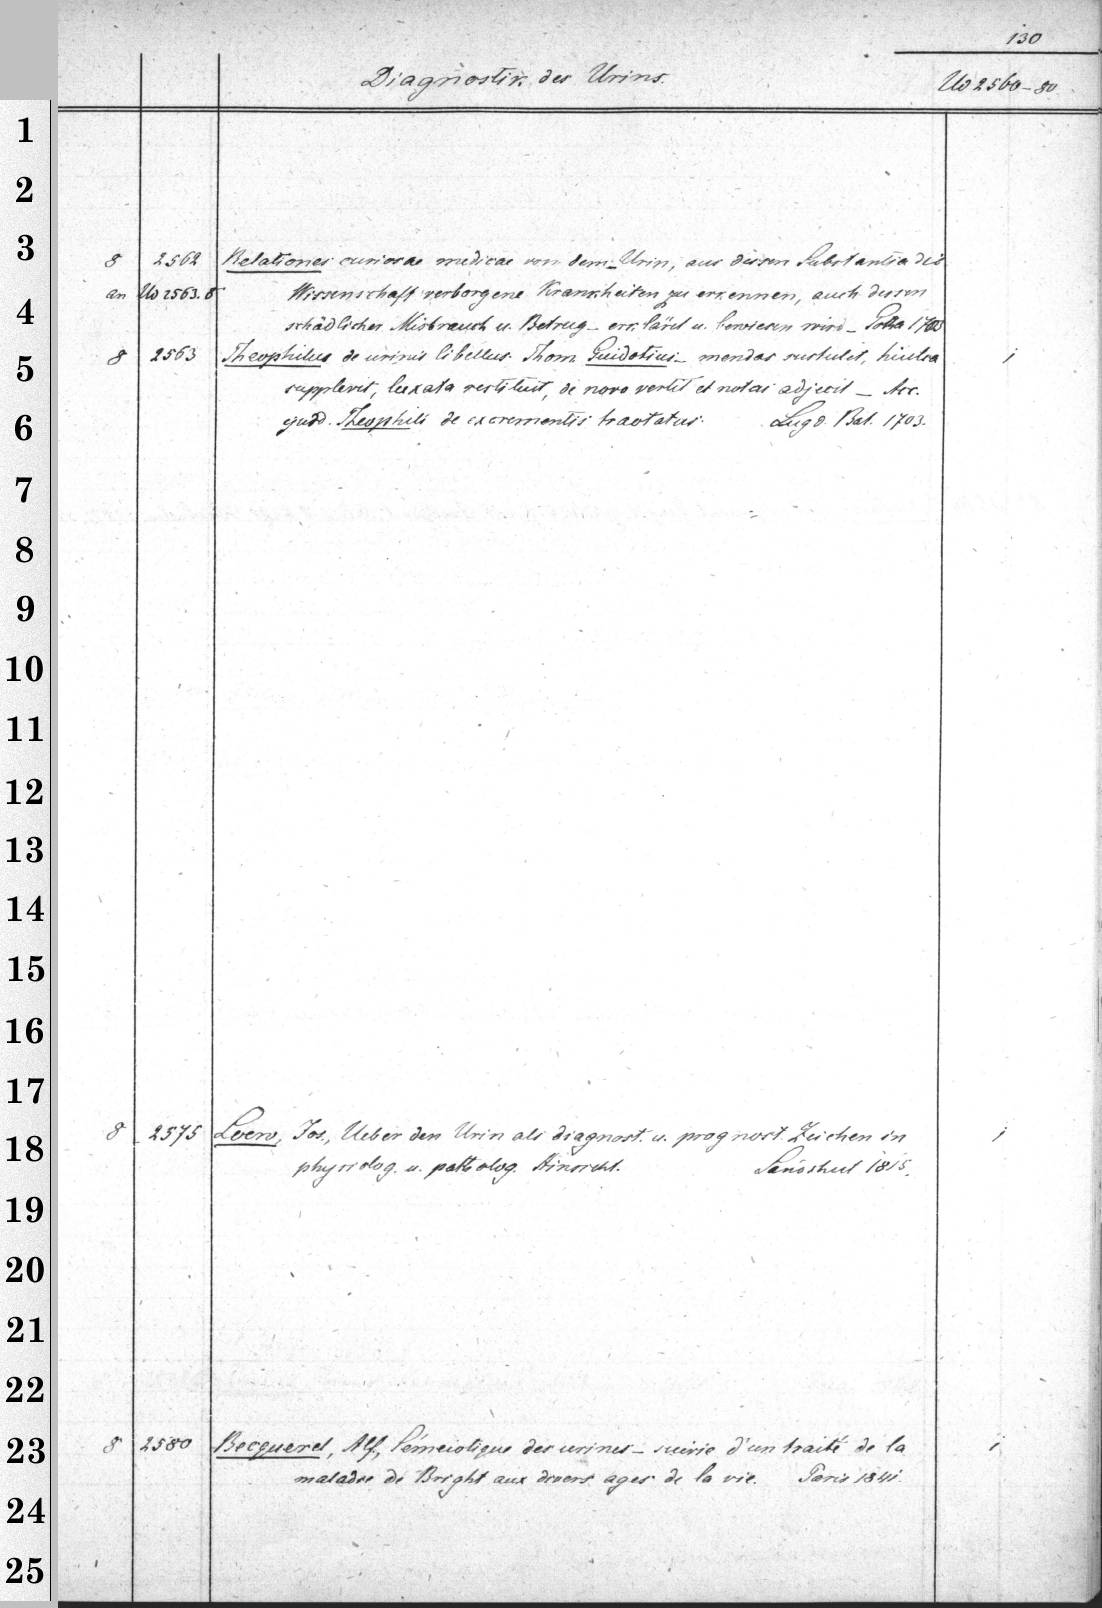 130
Diagnostik des Urins.
Uv 2560-80
1
2
3
8 2562 Relationes curiosae medicae von dem Urin, aus dessen Substantia die
an Uv 2563. 8 Wissenschaft verborgene Krankheiten zu erkennen, auch dessen
4
schädlicher Misbrauch u. Betrug – erklärt u. bewiesen wird – 1703
5
8 2563 Theophilus de urinis libellus. Thom. Guidotius – mendas sustulit, hiulca 1
supplevit, luxata restituit, de novo vertit et notas adjecit – Acc.
6
ejusd. Theophili de excrementis tractatus. Lugd. Bat. 1703.
7
8
9
10
11
12
13
14
15
16
17
8 2575 Loew, Jos., Ueber den Urin als diagnost. u. prognost. Zeichen in 1
18
physiolog. u. patholog. Hinsicht. Landshut 1815.
19
20
21
22
8 2580 Becquerel, Alf., Séméiotique des urines – suivie d'un traité de la 1
23
maladie de Bright aux divers ages de la vie. Paris 1841.
24
25